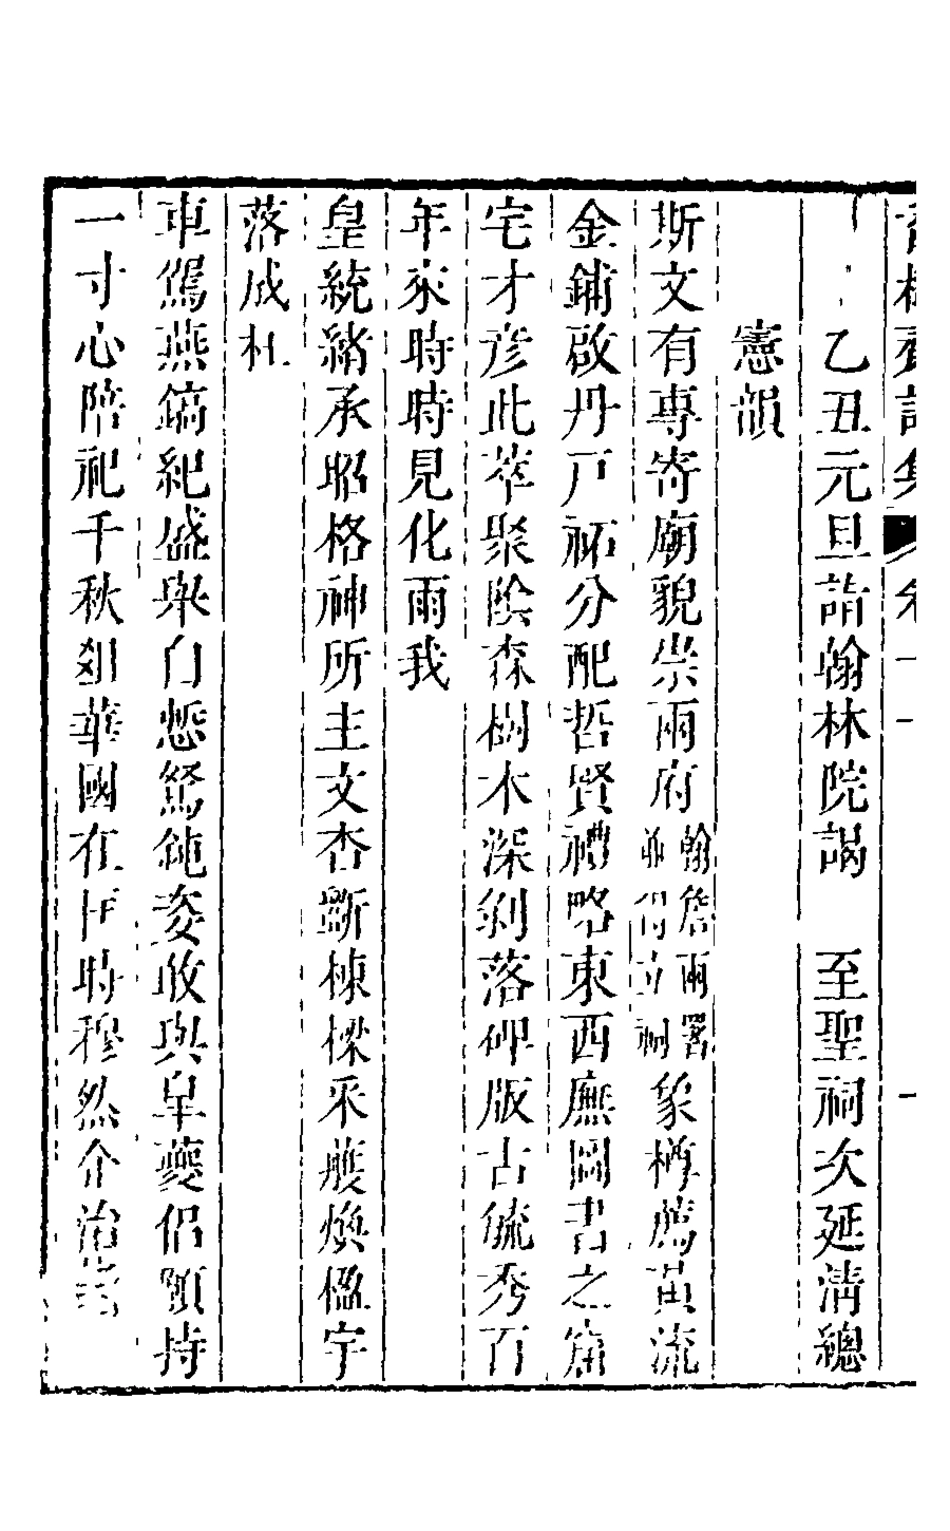 乙丑元旦詣翰林院謁　至聖祠次延淸總
憲韻
斯文有專寄廟貌崇兩府翰詹兩署並得立祠象樽薦黃流
金鋪啟丹戸祏分配哲賢禮略東西廡圖書之窟
宅才彥此萃聚陰森樹木深剝落碑版古毓秀百
年來時時見化雨我
皇統緒承昭格神所主文杏斲棟樑采雘煥楹宇
落成杜
車駕燕鎬紀盛舉自慙駑鈍姿敢與皐夔侶願持
一寸心陪祀千秋俎華國在何時穆然介治